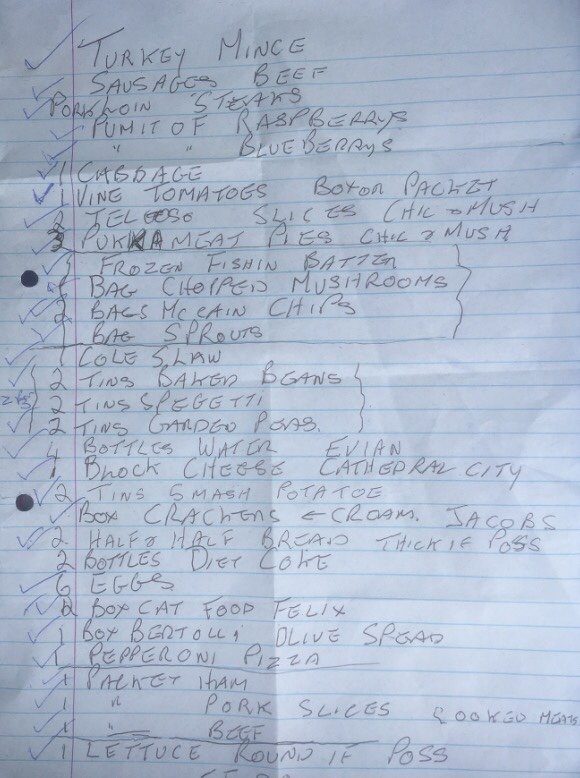 TURKEY MINCE
SAUSAGES BEEF
PORK LOIN STEAKS
PUMIT OF RASPBERRYS
" " BLUEBERRYS
1 CABBAGE
1 VINE TOMATOES BOX OR PACKET
2 SLICES CHIC & MUSH
3 PUKKA MEAT PIES CHIC & MUSH
1 FROZEN FISH IN BATTER
1 BAG CHOPPED MUSHROOMS
2 BAGS McCAIN CHIPS
1 BAG SPROUTS
1 COLE SLAW
2 TINS BAKED BEANS
2 TINS SPEGETTI
2 TINS GARDEN PEAS.
4 BOTTLES WATER EVIAN
1 BLOCK CHEESE CATHEDRAL CITY
2 TINS SMASH POTATOE
BOX CRACKERS CREAM. JACOBS
2 HALF & HALF BREAD THICK IF POSS
2 BOTTLES DIET COKE
6 EGGS
2 BOX CAT FOOD FELIX
1 BOX BERTOLLI OLIVE SPEAD
1 PEPPERONI PIZZA
1 PACKET HAM
1 " PORK SLICES COOKED MEATS
1 " BEEF
1 LETTUCE ROUND IF POSS